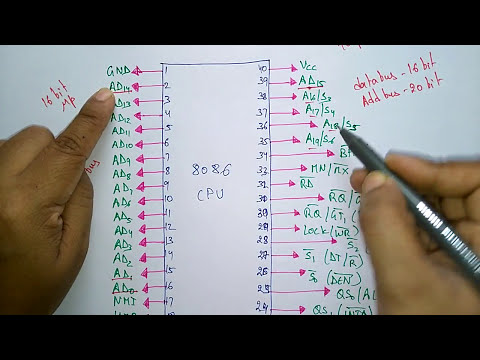 16 bit
MP
bus
GND 1
AD14 2
AD13 3
AD12 4
AD11 5
AD10 6
AD9 7
AD8 8
AD7 9
AD6 10
AD5 11
AD4 12
AD3 13
AD2 14
AD1 15
AD0 16
NMI 17
8086
CPU
40 VCC
39 AD15
38 A16/S3
37 A17/S4
36 A18/S5
35 A19/S6
34
33 MN/MX
32 RD
RQ/
30 RQ/GT1 (
29 LOCK(WR)
28 S2
27 S1 (DT/R)
26 S0 (DEN)
25 QS0/AL
24 QS1 (INTA)
data bus - 16 bit
Add bus - 20 bit